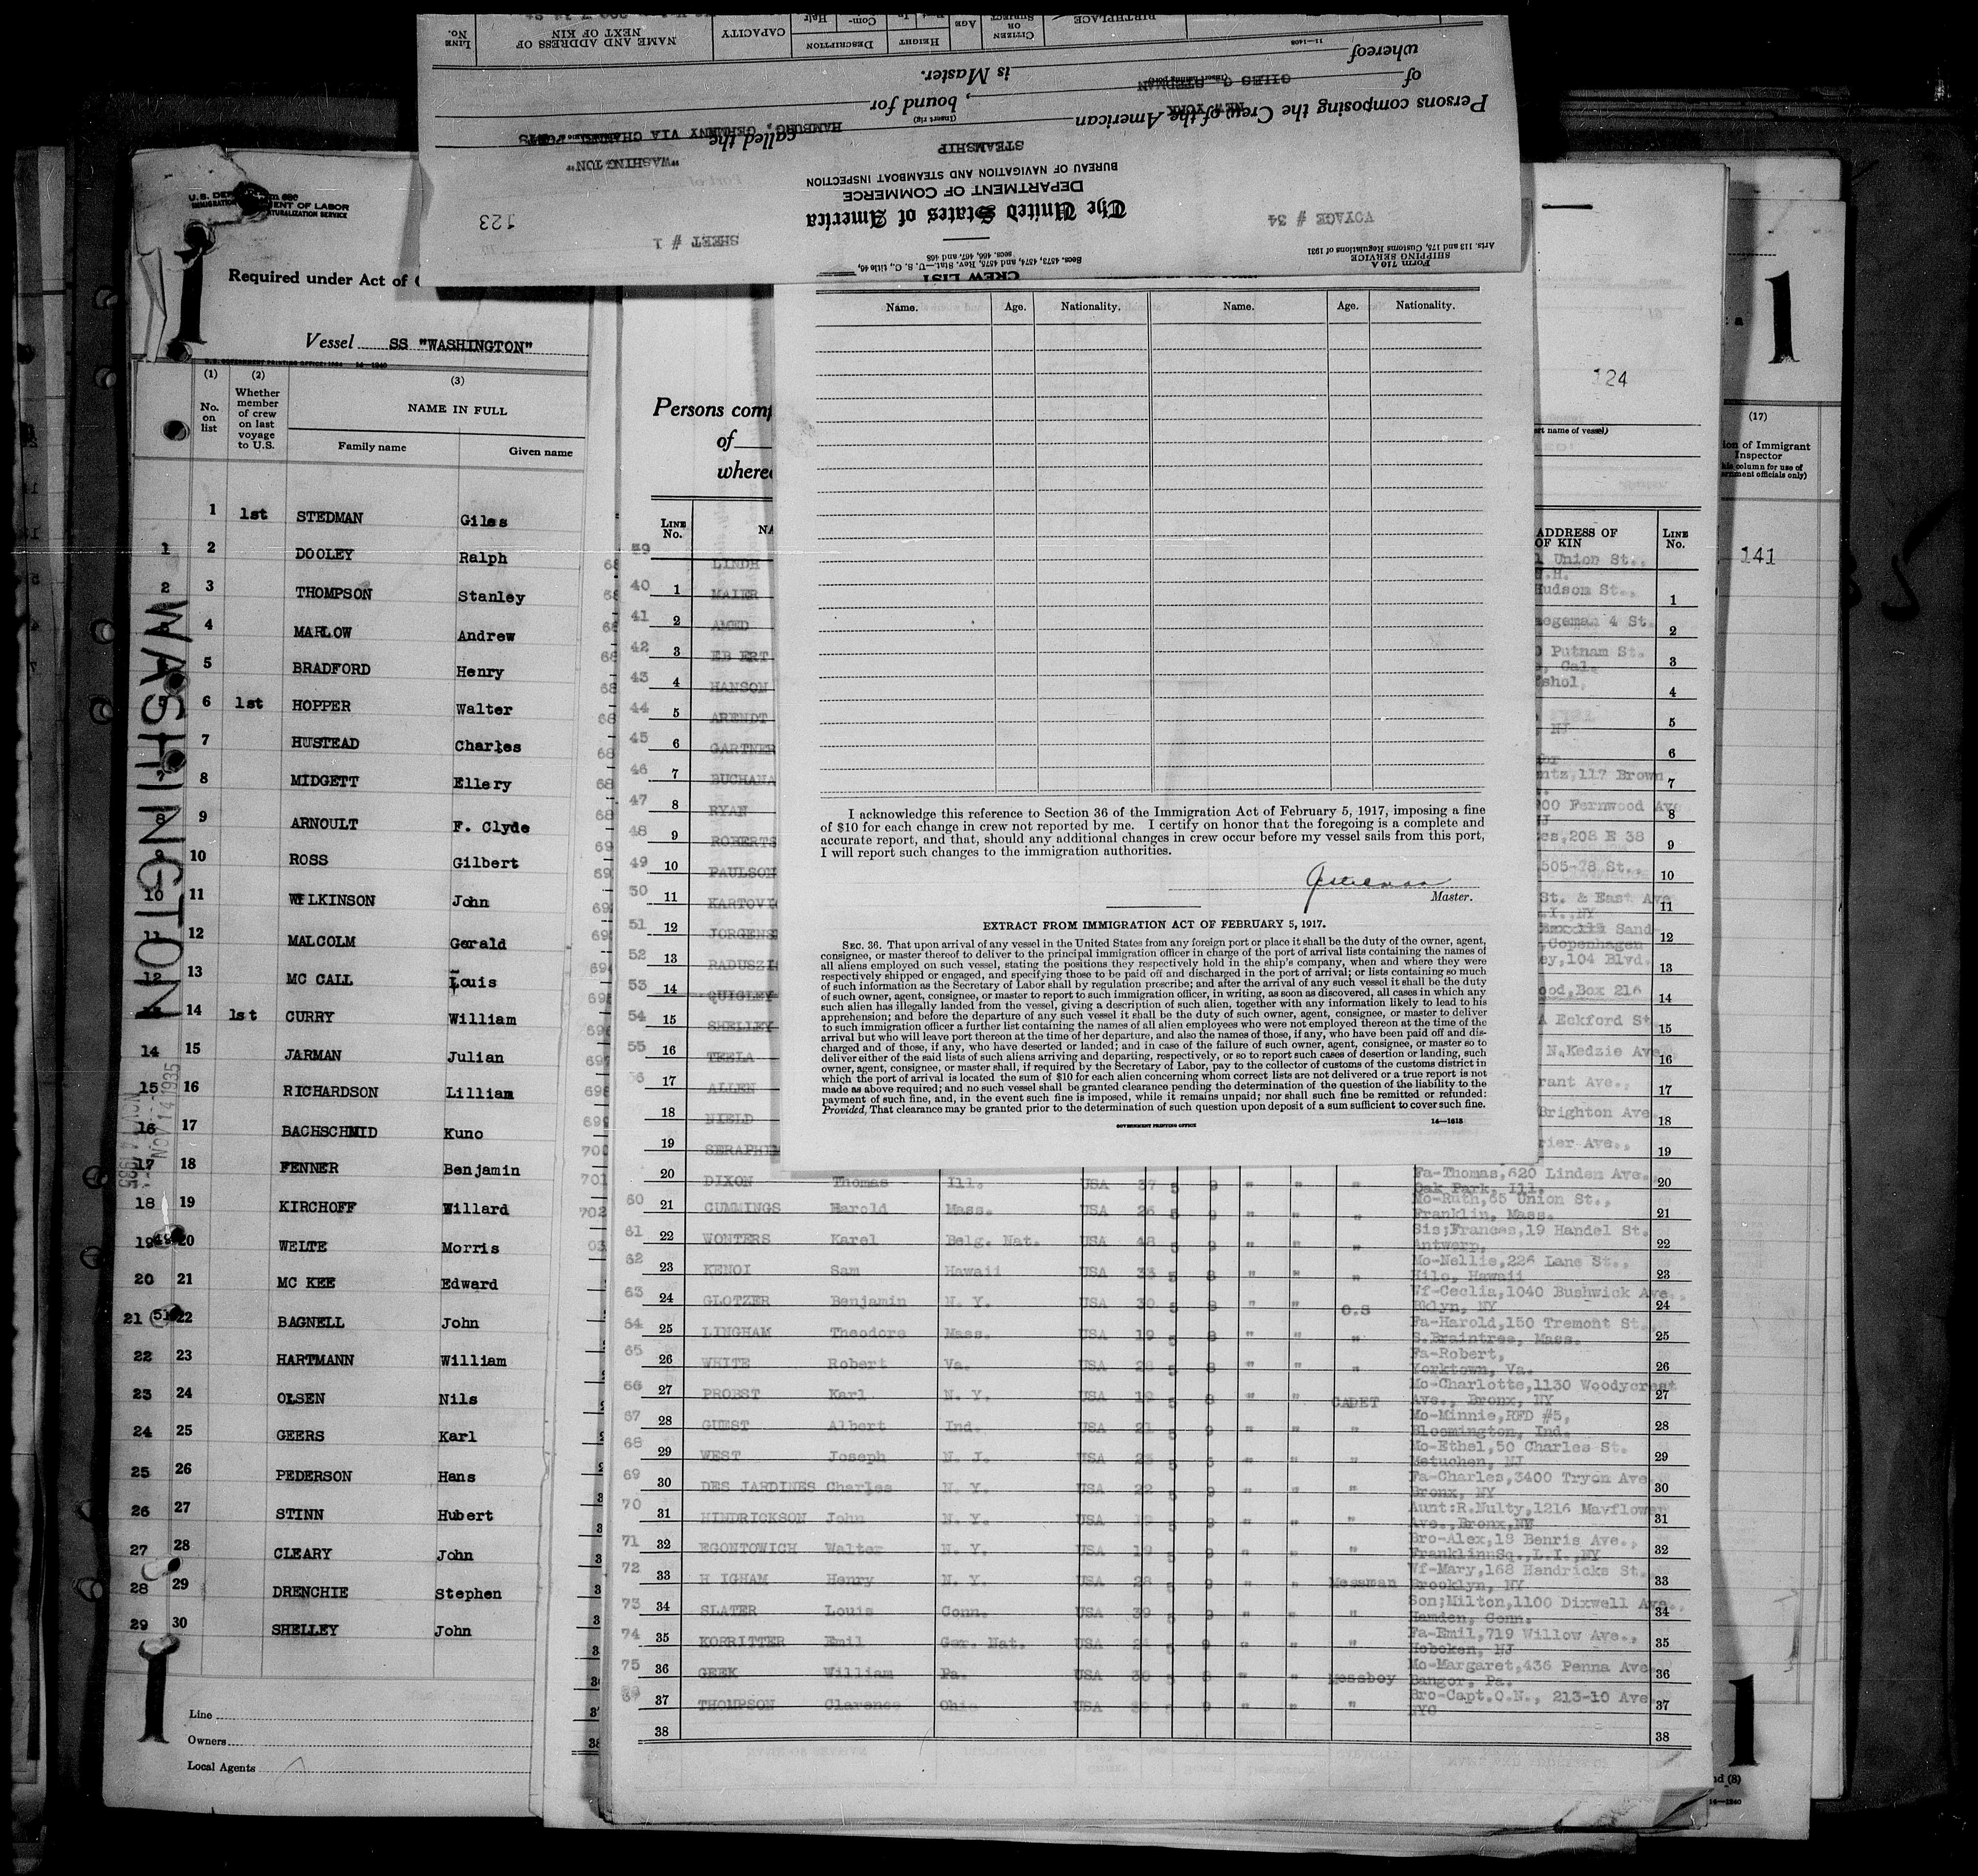 NAME AND ADDRESS OF NEXT OF KIN
LINE No.
CAPACITY
DESCRIPTION
HEIGHT
AGE
CITIZEN OR SUBJECT
BIRTHPLACE
11-1408
whereof
is Master.
of GILES C STEDMAN
, bound for
HAMBURG, GERMANY VIA CHANNEL PORTS
Persons composing the Crew of the American
NEW YORK
(Insert rig)
called the
STEAMSHIP
"WASHINGTON"
BUREAU OF NAVIGATION AND STEAMBOAT INSPECTION
DEPARTMENT OF COMMERCE
The United States of America
123
SHEET # 1
VOYAGE # 34
CREW LIST
Secs. 4573, 4574, and 4575, Rev. Stat.—U. S. C., title 46,
secs. 466, 467, and 468
Form 710 A
SHIPPING SERVICE
Arts. 113 and 175, Customs Regulations of 1931
IMMIGRATION
NATURALIZATION SERVICE
Required under Act of
Vessel SS "WASHINGTON"
U. S. GOVERNMENT PRINTING OFFICE: 1934 14—1240
(1) No. on list
(2) Whether member of crew on last voyage to U.S.
(3) NAME IN FULL
Family name Given name
1 1st STEDMAN Giles
1 2 DOOLEY Ralph
2 3 THOMPSON Stanley
4 MARLOW Andrew
5 BRADFORD Henry
6 1st HOPPER Walter
7 HUSTEAD Charles
7 8 MIDGETT Ellery
8 9 ARNOULT F. Clyde
9 10 ROSS Gilbert
10 11 WILKINSON John
11 12 MALCOLM Gerald
12 13 MC CALL Louis
13 14 1st CURRY William
14 15 JARMAN Julian
15 16 RICHARDSON Lilliam
16 17 BACHSCHMID Kuno
17 18 FENNER Benjamin
18 19 KIRCHOFF Willard
19 20 WELTE Morris
20 21 MC KEE Edward
21 22 BAGNELL John
22 23 HARTMANN William
23 24 OLSEN Nils
24 25 GEERS Karl
25 26 PEDERSON Hans
26 27 STINN Hubert
27 28 CLEARY John
28 29 DRENCHIE Stephen
29 30 SHELLEY John
Line
Owners
Local Agents
WASHINGTON
NOV 14 1935
Persons comp
of
where
LINE No.
59 LINDH
40 1 MAIER
41 2 AMED
42 3 EBERT
43 4 HANSON
44 5 ARENDT
45 6 GARTNER
46 7 BUCHANA
47 8 RYAN
48 9 ROBERTS
49 10 PAULSON
50 11 KARTOVI
51 12 JORGENS
52 13 RADUSZI
53 14 QUIGLEY
54 15 SHELLEY
55 16 TEELA
17 ALLEN
18 NIELD
19 SERAPHIM
20 DIXON Thomas Ill. USA 37 5 9 " " " Fa-Thomas,620 Linden Ave. Oak Park, Ill. 20
60 21 CUMMINGS Harold Mass. USA 26 5 9 " " " Mo-Ruth,65 Union St., Franklin, Mass. 21
61 22 WONTERS Karel Belg. Nat. USA 48 5 9 " " " Sis;Frances,19 Handel St. Antwerp, 22
62 23 KENOI Sam Hawaii USA 33 5 8 " " " Mo-Nellie,226 Lane St., Hilo, Hawaii 23
63 24 GLOTZER Benjamin N. Y. USA 30 5 8 " " O.S Wf-Ceclia,1040 Bushwick Ave., Bklyn, NY 24
64 25 LINGHAM Theodore Mass. USA 19 5 8 " " " Fa-Harold,150 Tremont St., S.Braintree, Mass. 25
65 26 WHITE Robert Va. USA 5 8 " " " Fa-Robert, Yorktown, Va. 26
66 27 PROBST Karl N. Y. USA 19 5 8 " " CADET Mo-Charlotte,1130 Woodycrest Ave., Bronx, NY 27
67 28 GUEST Albert Ind. USA 21 5 9 " " " Mo-Minnie,RFD #5, Bloomington, Ind. 28
68 29 WEST Joseph N. J. USA 5 " " " Mo-Ethel,50 Charles St. Metuchen, NJ 29
69 30 DES JARDINES Charles N. Y. USA 22 5 9 " " " Fa-Charles,3400 Tryon Ave. Bronx, NY 30
70 31 HINDRICKSON John N. Y. USA 5 9 " " " Aunt:R.Nulty,1216 Mayflower Ave.,Bronx,NY 31
71 32 EGONTOWICH Walter N. Y. USA 19 5 9 " " " Bro-Alex,18 Benris Ave., FranklinSq.,L.I.,NY 32
72 33 HIGHAM Henry N. Y. USA 28 5 9 " " Messman Wf-Mary,168 Hendricks St., Brooklyn, NY 33
73 34 SLATER Louis Conn. USA 39 5 9 " " " Son;Milton,1100 Dixwell Ave., Hamden, Conn. 34
74 35 KORRITTER Emil Ger. Nat. USA 5 9 " " " Fa-Emil,719 Willow Ave., Hoboken, NJ 35
75 36 GEEK William Pa. USA 30 5 8 " " Messboy Mo-Margaret,436 Penna Ave Bangor, Pa. 36
37 THOMPSON Clarence Ohio USA 9 " " " Bro-Capt.O.N., 213-10 Ave NYC 37
38 38
Name. Age. Nationality. Name. Age. Nationality.
I acknowledge this reference to Section 36 of the Immigration Act of February 5, 1917, imposing a fine
of $10 for each change in crew not reported by me. I certify on honor that the foregoing is a complete and
accurate report, and that, should any additional changes in crew occur before my vessel sails from this port,
I will report such changes to the immigration authorities.
Master.
EXTRACT FROM IMMIGRATION ACT OF FEBRUARY 5, 1917.
SEC. 36. That upon arrival of any vessel in the United States from any foreign port or place it shall be the duty of the owner, agent,
consignee, or master thereof to deliver to the principal immigration officer in charge of the port of arrival lists containing the names of
all aliens employed on such vessel, stating the positions they respectively hold in the ship's company, when and where they were
respectively shipped or engaged, and specifying those to be paid off and discharged in the port of arrival; or lists containing so much
of such information as the Secretary of Labor shall by regulation prescribe; and after the arrival of any such vessel it shall be the duty
of such owner, agent, consignee, or master to report to such immigration officer, in writing, as soon as discovered, all cases in which any
such alien has illegally landed from the vessel, giving a description of such alien, together with any information likely to lead to his
apprehension; and before the departure of any such vessel it shall be the duty of such owner, agent, consignee, or master to deliver
to such immigration officer a further list containing the names of all alien employees who were not employed thereon at the time of the
arrival but who will leave port thereon at the time of her departure, and also the names of those, if any, who have been paid off and dis-
charged and of those, if any, who have deserted or landed; and in case of the failure of such owner, agent, consignee, or master so to
deliver either of the said lists of such aliens arriving and departing, respectively, or so to report such cases of desertion or landing, such
owner, agent, consignee, or master shall, if required by the Secretary of Labor, pay to the collector of customs of the customs district in
which the port of arrival is located the sum of $10 for each alien concerning whom correct lists are not delivered or a true report is not
made as above required; and no such vessel shall be granted clearance pending the determination of the question of the liability to the
payment of such fine, and, in the event such fine is imposed, while it remains unpaid; nor shall such fine be remitted or refunded:
Provided, That clearance may be granted prior to the determination of such question upon deposit of a sum sufficient to cover such fine.
GOVERNMENT PRINTING OFFICE
14—1618
124
ert name of vessel)
ADDRESS OF
OF KIN
LINE No.
Union St.,
N.H.
Hudsom St., 1
egeman 4 St. 2
Putnam St. 3
Cal.
shol, 4
5
NJ
6
ntz,117 Brown 7
00 Fernwood Ave 8
cs,208 E 38 9
505-78 St., 10
St. & East Ave 11
L.I.,NY
Sand 12
Copenhagen
ey,104 Blvd. 13
ood,Box 216 14
A Eckford St 15
N.Kedzie Ave 16
rant Ave., 17
Brighton Ave 18
rier Ave., 19
1
(17)
ion of Immigrant
Inspector
his column for use of
ernment officials only)
141
nd (8)
14—1240